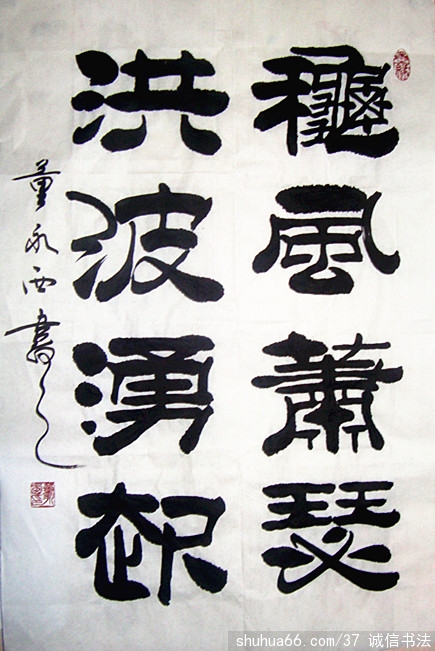 龝風蕭瑟
洪波湧起
董永西書之
shuhua66.com/37 诚信书法